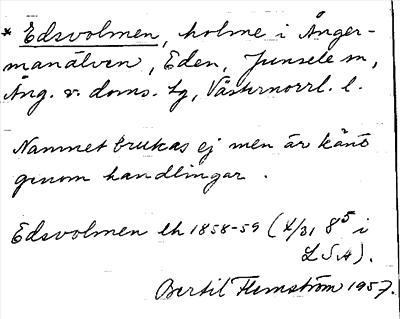 * Edsvolmen, holme i Ånger-
manälven, Eden, Junsele sn,
Ång. v. doms. tg, Västernorrl. l.
Namnet brukas ej men är känt
genom handlingar.
Edsvolmen lh 1858-59 (4/31 8⁵ i
LSA).
Bertil Flemström 1957.